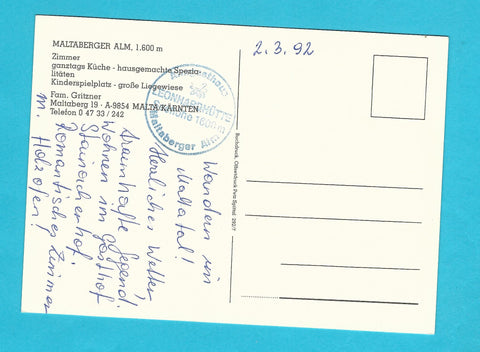 MALTABERGER ALM, 1.600 m
Zimmer
ganztags Küche - hausgemachte Spezia-
litäten
Kinderspielplatz - große Liegewiese
Fam. Gritzner
Maltaberg 19 · A-9854 MALTA/KÄRNTEN
Telefon 0 47 33 / 242
2.3.92
LEONHARDHÜTTE
Seehöhe 1600 m
Maltaberger Alm
Wandern im
Maltatal!
Herrliches Wetter,
traumhafte Gegend.
Wohnen im Gasthof
Romantisches Zimmer
m. Holzofen!